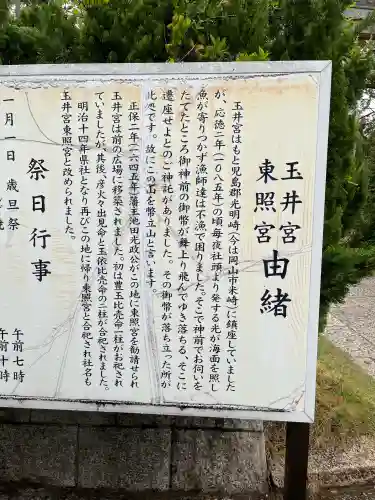 玉井宮
東照宮
由緒
玉井宮はもと児島郡光明崎(今は岡山市米崎)に鎮座していました
が、応徳二年(一〇八五年)の頃毎夜社頭より発する光が海面を照し
魚が寄りつかず漁師達は不漁で困りました。そこで神前でお伺いを
たてたところ御神前の御幣が舞上り飛んでゆき落ちる、そこに
遷座せよとのご神託がありました。その御幣が落ち立った所が
此処です。故にこの山を幣立山と言います。
正保二年(一六四五年)藩主池田光政公がこの地に東照宮を勧請せられ
玉井宮は前の広場に移築されました。初は豊玉比売命一柱がお祀され
ていましたが、其後、彦火々出見命と玉依比売命の二柱が合祀されました。
明治十四年県社となり再びこの地に帰り東照宮と合祀され社名も
玉井宮東照宮と改められました。
祭日行事
一月一日 歳旦祭
午前七時
午前十時